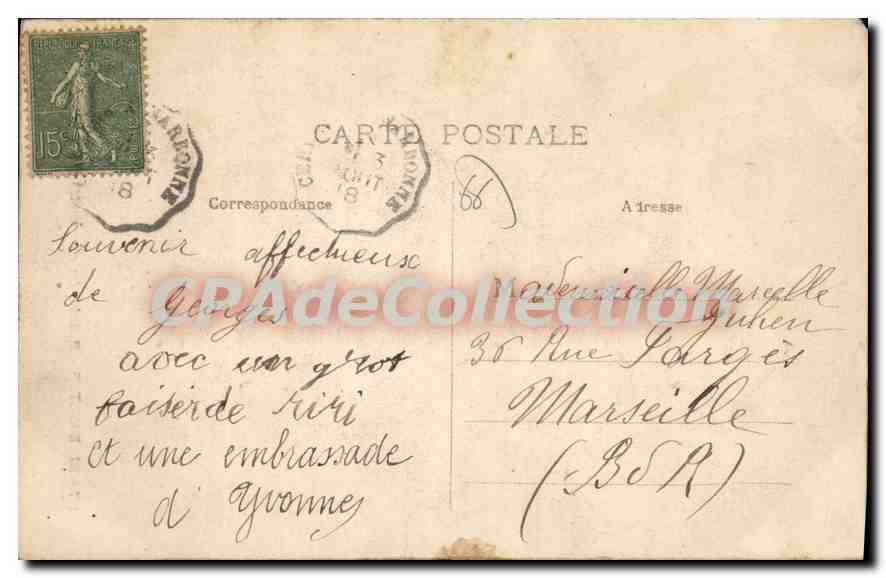 REPUBLIQUE FRANÇAISE
15c
NARBONNE
18
CARTE POSTALE
NARBONNE
3
AOUT
18
Correspondance
66
Adresse
Souvenir affectueux
de Georges
avec un gros
baiser de riri
et une embrassade
d' Yvonne
Mademoiselle Marcelle
36 Rue
Marseille
(B d R)
CPAdeCollection